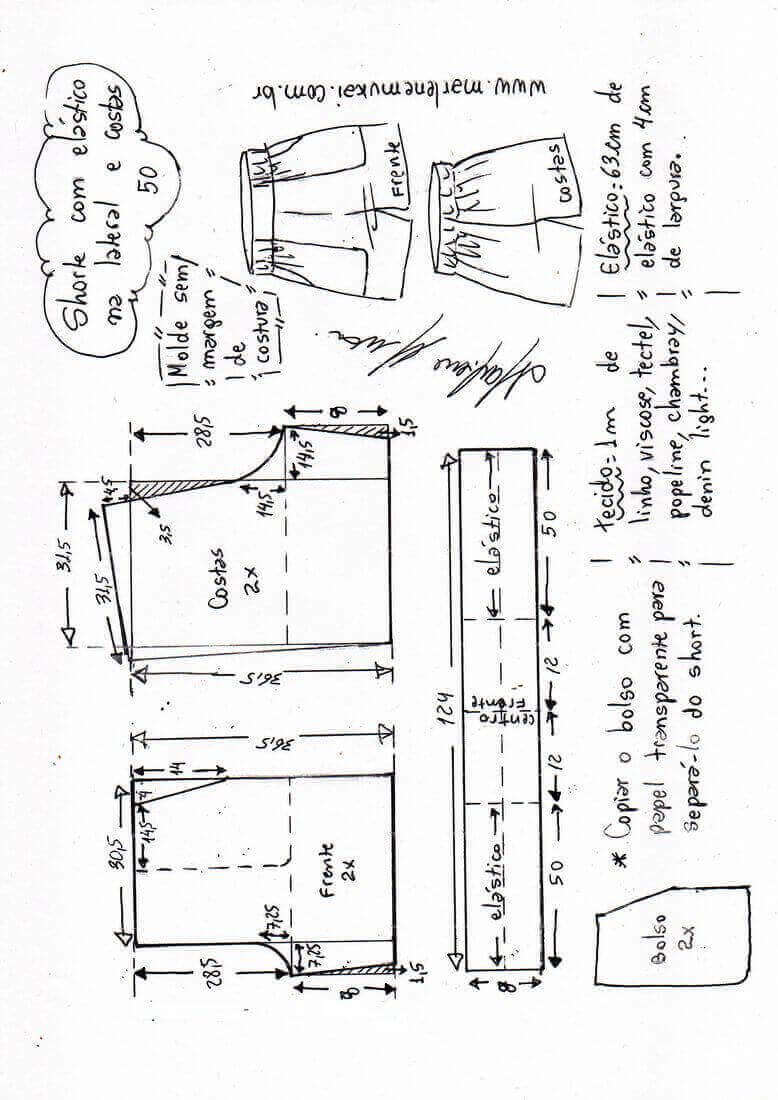 Shorte com elástico
na lateral e costas
50
www.marlenemukai.com.br
Molde sem
margem
de
costura
Frente
Costas
30,5
14,5
4
14
36,5
28,5
7,25
7,25
8
1,5
Frente
2x
32,5
31,5
4,5
3,5
28,5
14,5
14,5
8
1,5
36,5
Costas
2x
124
elástico
centro
Frente
elástico
50
12
12
50
8
Bolso
2x
* Copiar o bolso com
papel transparente para
separá-lo do short.
tecido=1m de
linho, viscose, tectel,
popeline, chambray,
denin light...
Elástico=63cm de
elástico com 4cm
de largura.